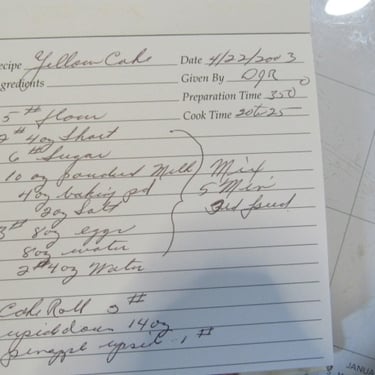 ecipe Yellow Cake Date 4/22/2003
gredients Given By DJR
Preparation Time 350
Cook Time 20to25
5# flour
2# 4oz Short
6# Sugar
10 oz powdered Milk
4oz baking pd
2oz Salt
3# 8oz eggs
8oz water
2#4oz Water
Mix
5 Min
3rd speed
Cake Roll 3#
upside down 14oz
pineapple upsid - 1#
JANUA